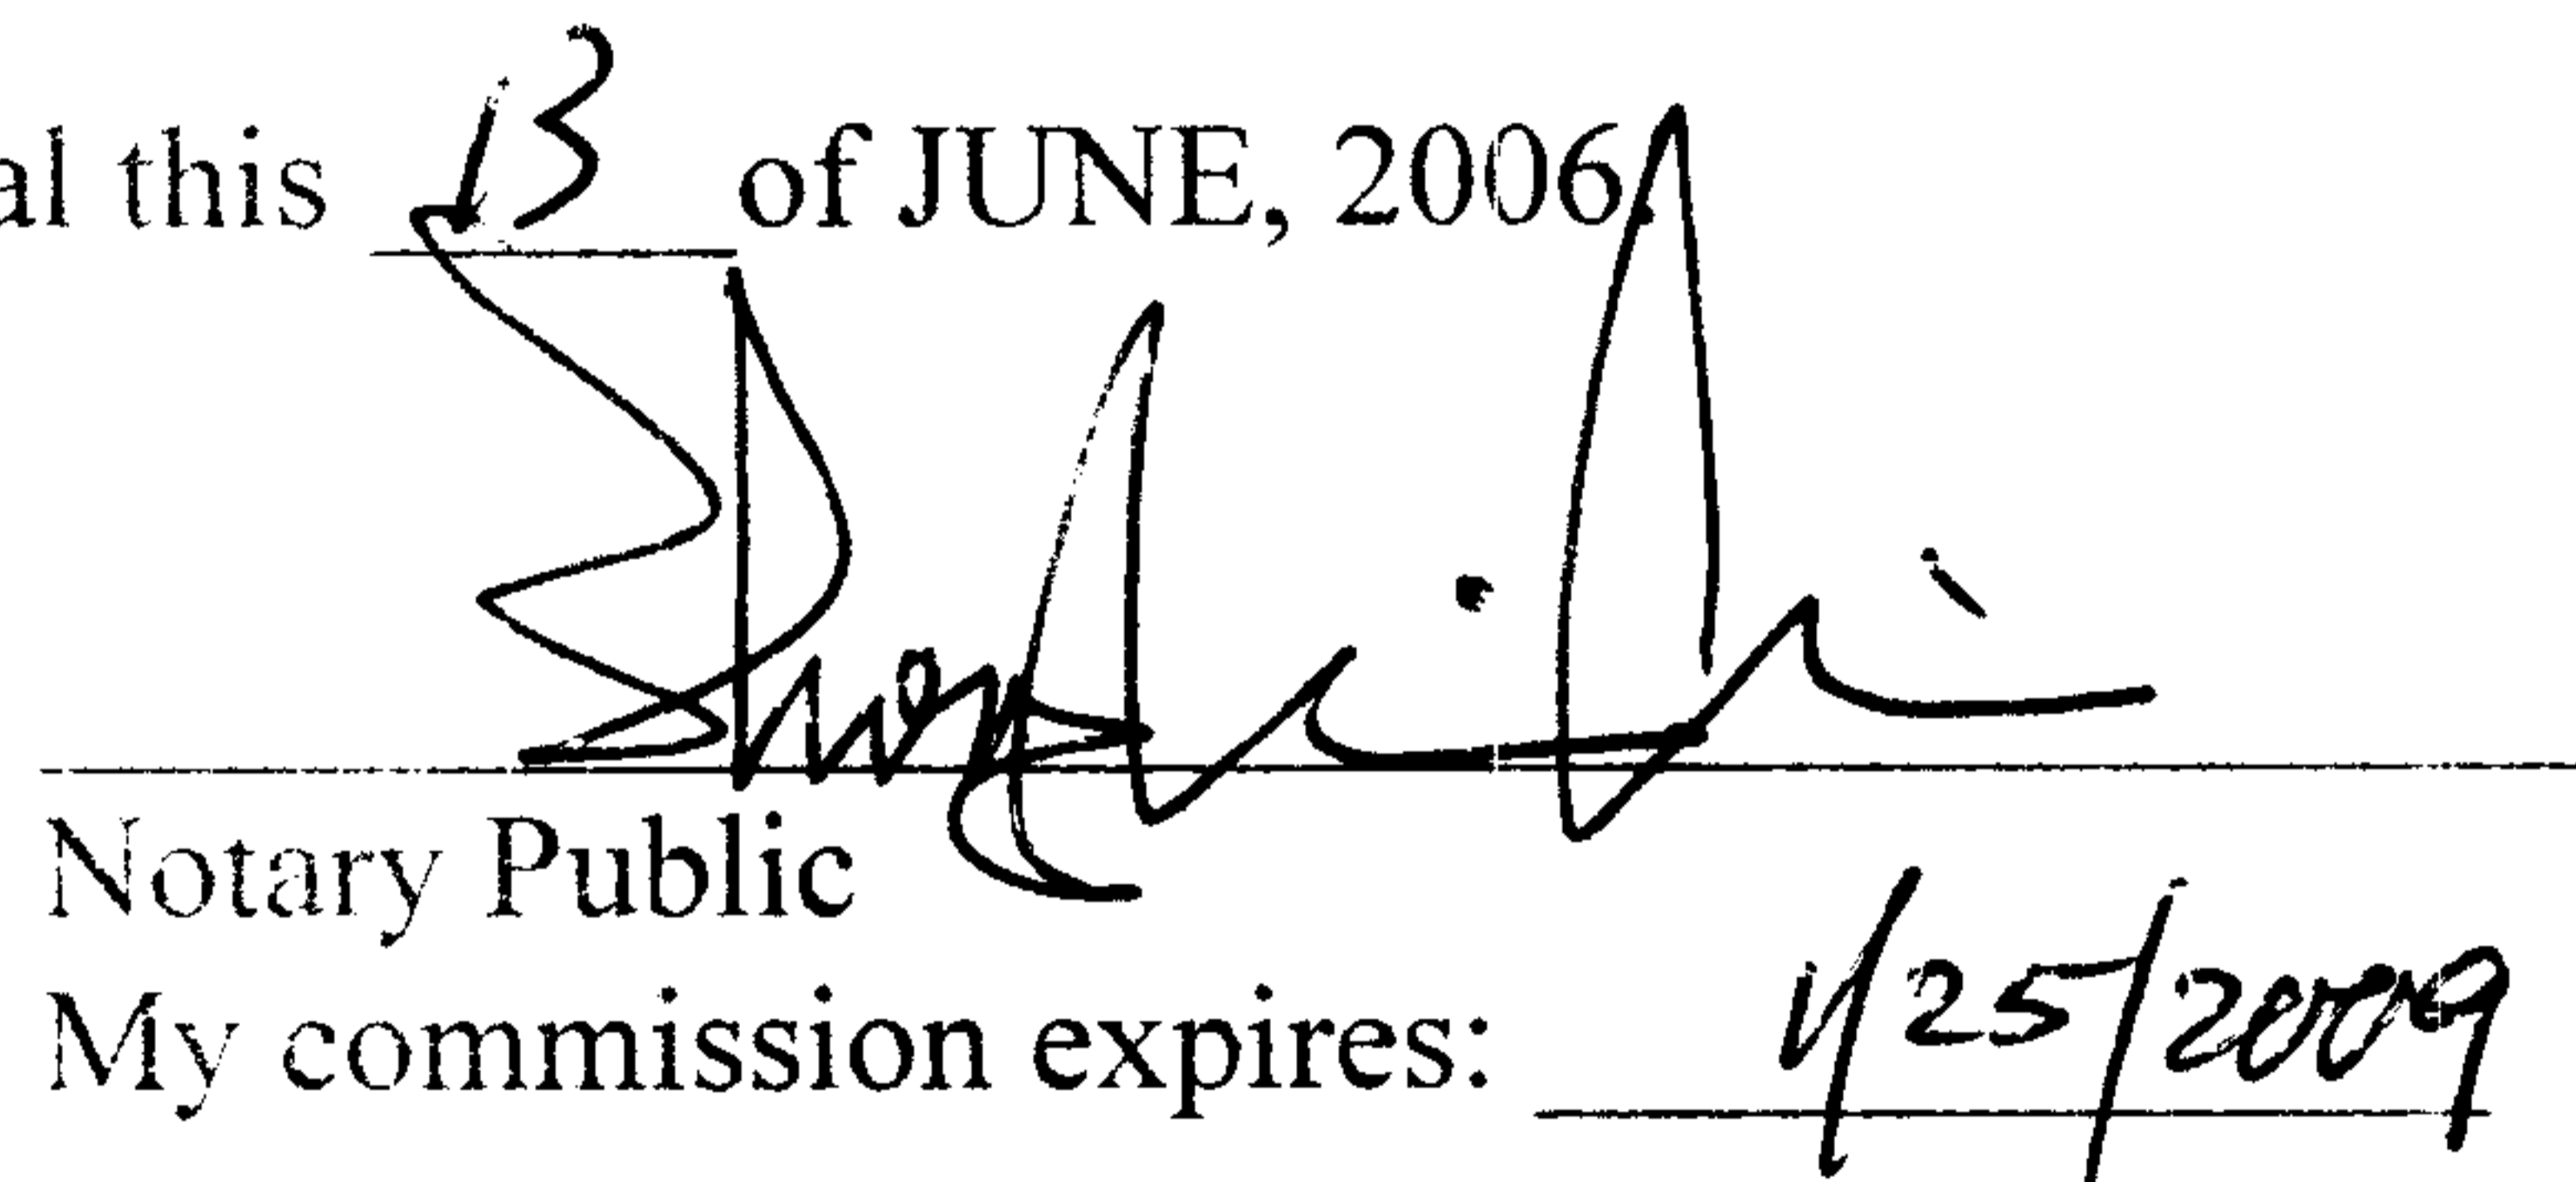 al this 13 of JUNE, 2006.
Notary Public
My commission expires: 1/25/2009